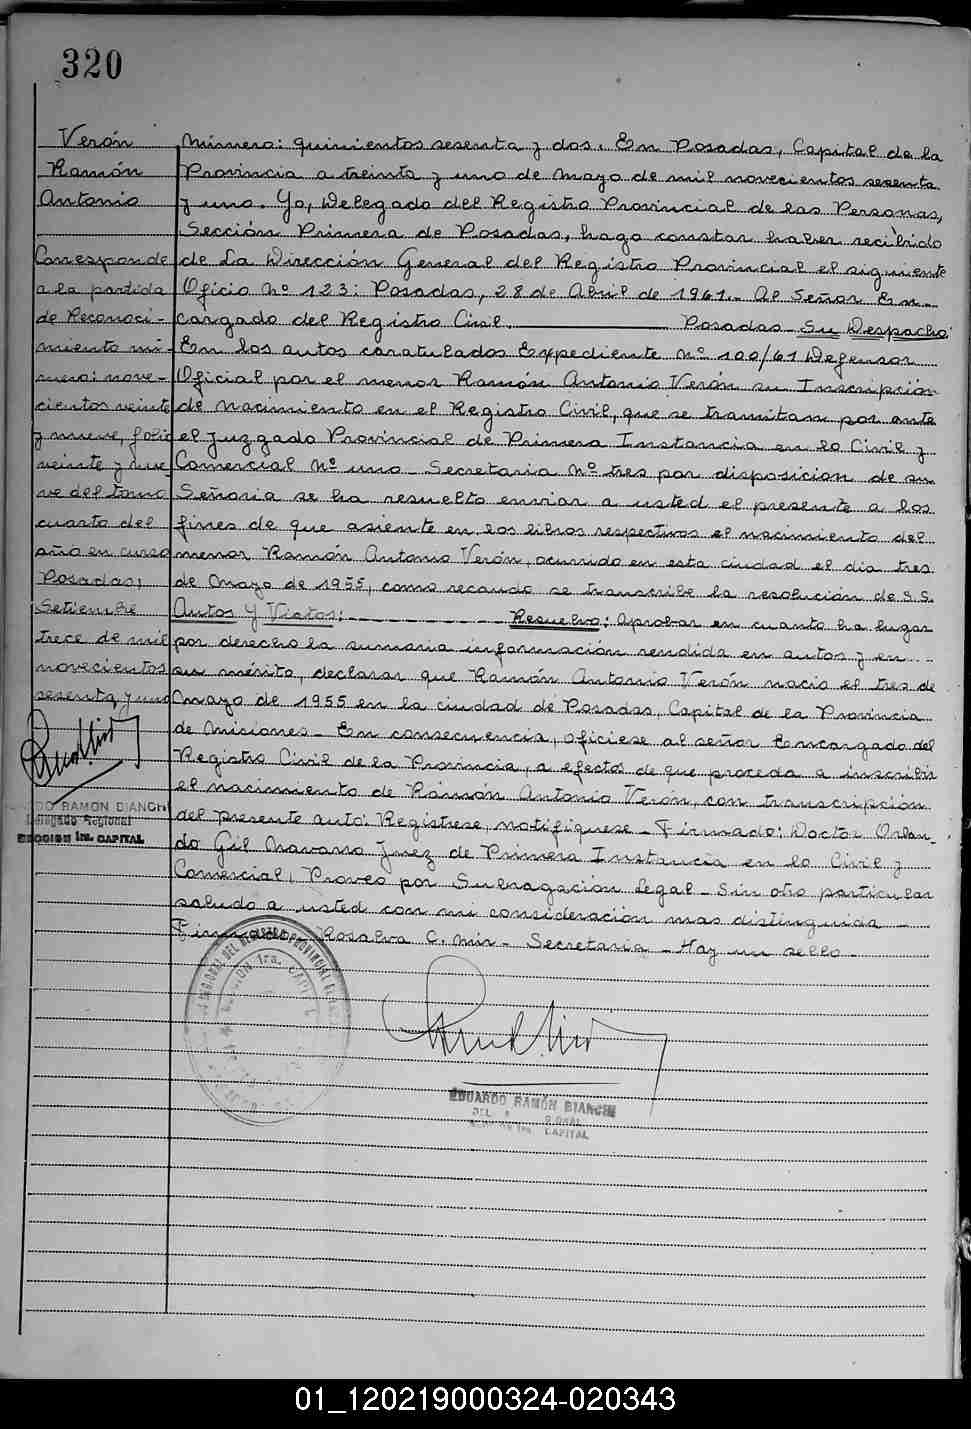 320
Verón
Ramón
Antonio
Corresponde
a la partida
de Reconoci-
miento nú-
mero: nove-
cientos veinte
y nueve, folio
veinte y nue-
ve del tomo
cuarto del
año en curso
Posadas,
Setiembre
trece de mil
novecientos
sesenta y uno
DO RAMON BIANCHI
Delegado Regional
SECCION 1ra. CAPITAL
Número: quinientos sesenta y dos. En Posadas, Capital de la
Provincia a treinta y uno de Mayo de mil novecientos sesenta
y uno. Yo, Delegado del Registro Provincial de las Personas,
Sección Primera de Posadas, hago constar haber recibido
de La Dirección General del Registro Provincial el siguiente
Oficio Nº 123: Posadas, 28 de Abril de 1961.- Al Señor En-
cargado del Registro Civil. Posadas - Su Despacho
En los autos caratulados Expediente nº 100/61 Defensor
Oficial por el menor Ramón Antonio Verón su Inscripción
de nacimiento en el Registro Civil, que se tramitan por ante
el Juzgado Provincial de Primera Instancia en lo Civil y
Comercial Nº uno - Secretaria Nº tres por disposicion de su
Señoria se ha resuelto enviar a usted el presente a los
fines de que asiente en los libros respectivos el nacimiento del
menor Ramón Antonio Verón, ocurrido en esta ciudad el día tres
de Mayo de 1955, como recaudo se transcribe la resolución de S.S.
Autos Y Vistos: - - - - - - - Resuelvo: Aprobar en cuanto ha lugar
por derecho la sumaria información rendida en autos y en
su mérito, declarar que Ramón Antonio Verón nació el tres de
Mayo de 1955 en la ciudad de Posadas, Capital de la Provincia
de Misiones - En consecuencia, ofíciese al señor Encargado del
Registro Civil de la Provincia, a efectos de que proceda a inscribir
el nacimiento de Ramón Antonio Verón, con transcripción
del presente auto. Regístrese, notifíquese - Firmado: Doctor Orlan-
do Gil Navarro Juez de Primera Instancia en lo Civil y
Comercial, Proveo por Subrogación Legal - Sin otro particular
saludo a usted con mi consideración mas distinguida -
Firmado: Rosalva C. Mir - Secretaria - Hay un sello -
REGIONAL DEL REGISTRO PROVINCIAL
SECCION 1ra. CAPITAL
EDUARDO RAMÓN BIANCHI
CAPITAL
01_120219000324-020343